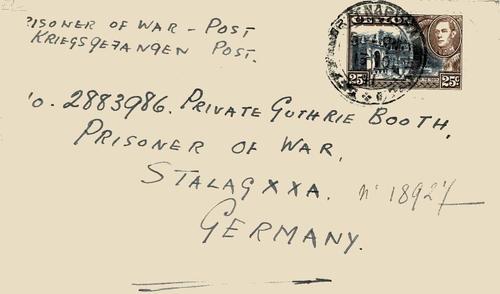 PRISONER OF WAR - POST
KRIEGSGEFANGEN POST.
CEYLON
25c 25c
No. 2883986. PRIVATE GUTHRIE BOOTH,
PRISONER OF WAR,
STALAG XXA. n° 18927
GERMANY.